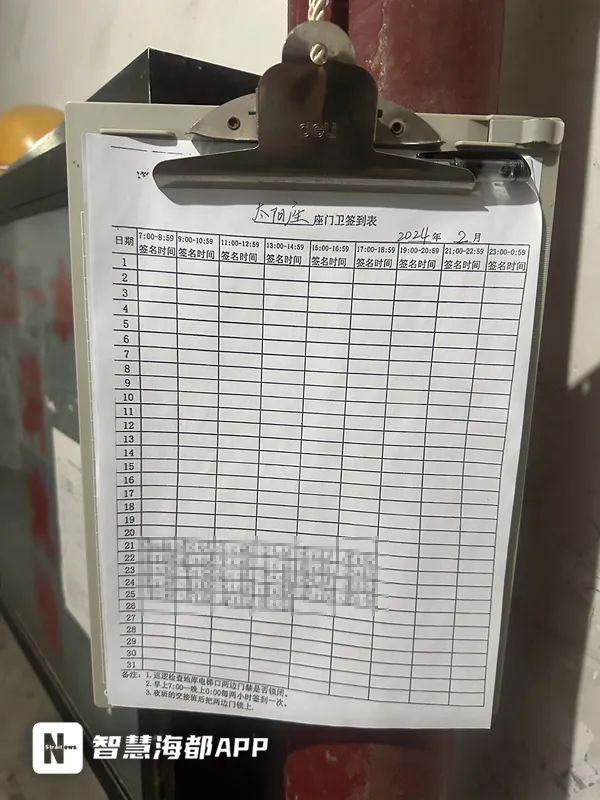 deli
太阳座 座门卫签到表
2024年 2月
日期 7:00-8:59 9:00-10:59 11:00-12:59 13:00-14:59 15:00-16:59 17:00-18:59 19:00-20:59 21:00-22:59 23:00-0:59
签名时间 签名时间 签名时间 签名时间 签名时间 签名时间 签名时间 签名时间 签名时间
1
2
3
4
5
6
7
8
9
10
11
12
13
14
15
16
17
18
19
20
21
22
23
24
25
26
27
28
29
30
31
备注：1.巡逻检查地库电梯口两边门禁是否锁闭。
2.早上7:00一晚上0:00每两小时签到一次。
3.夜班的交接班后把两边门锁上.
N
Strait News
智慧海都APP